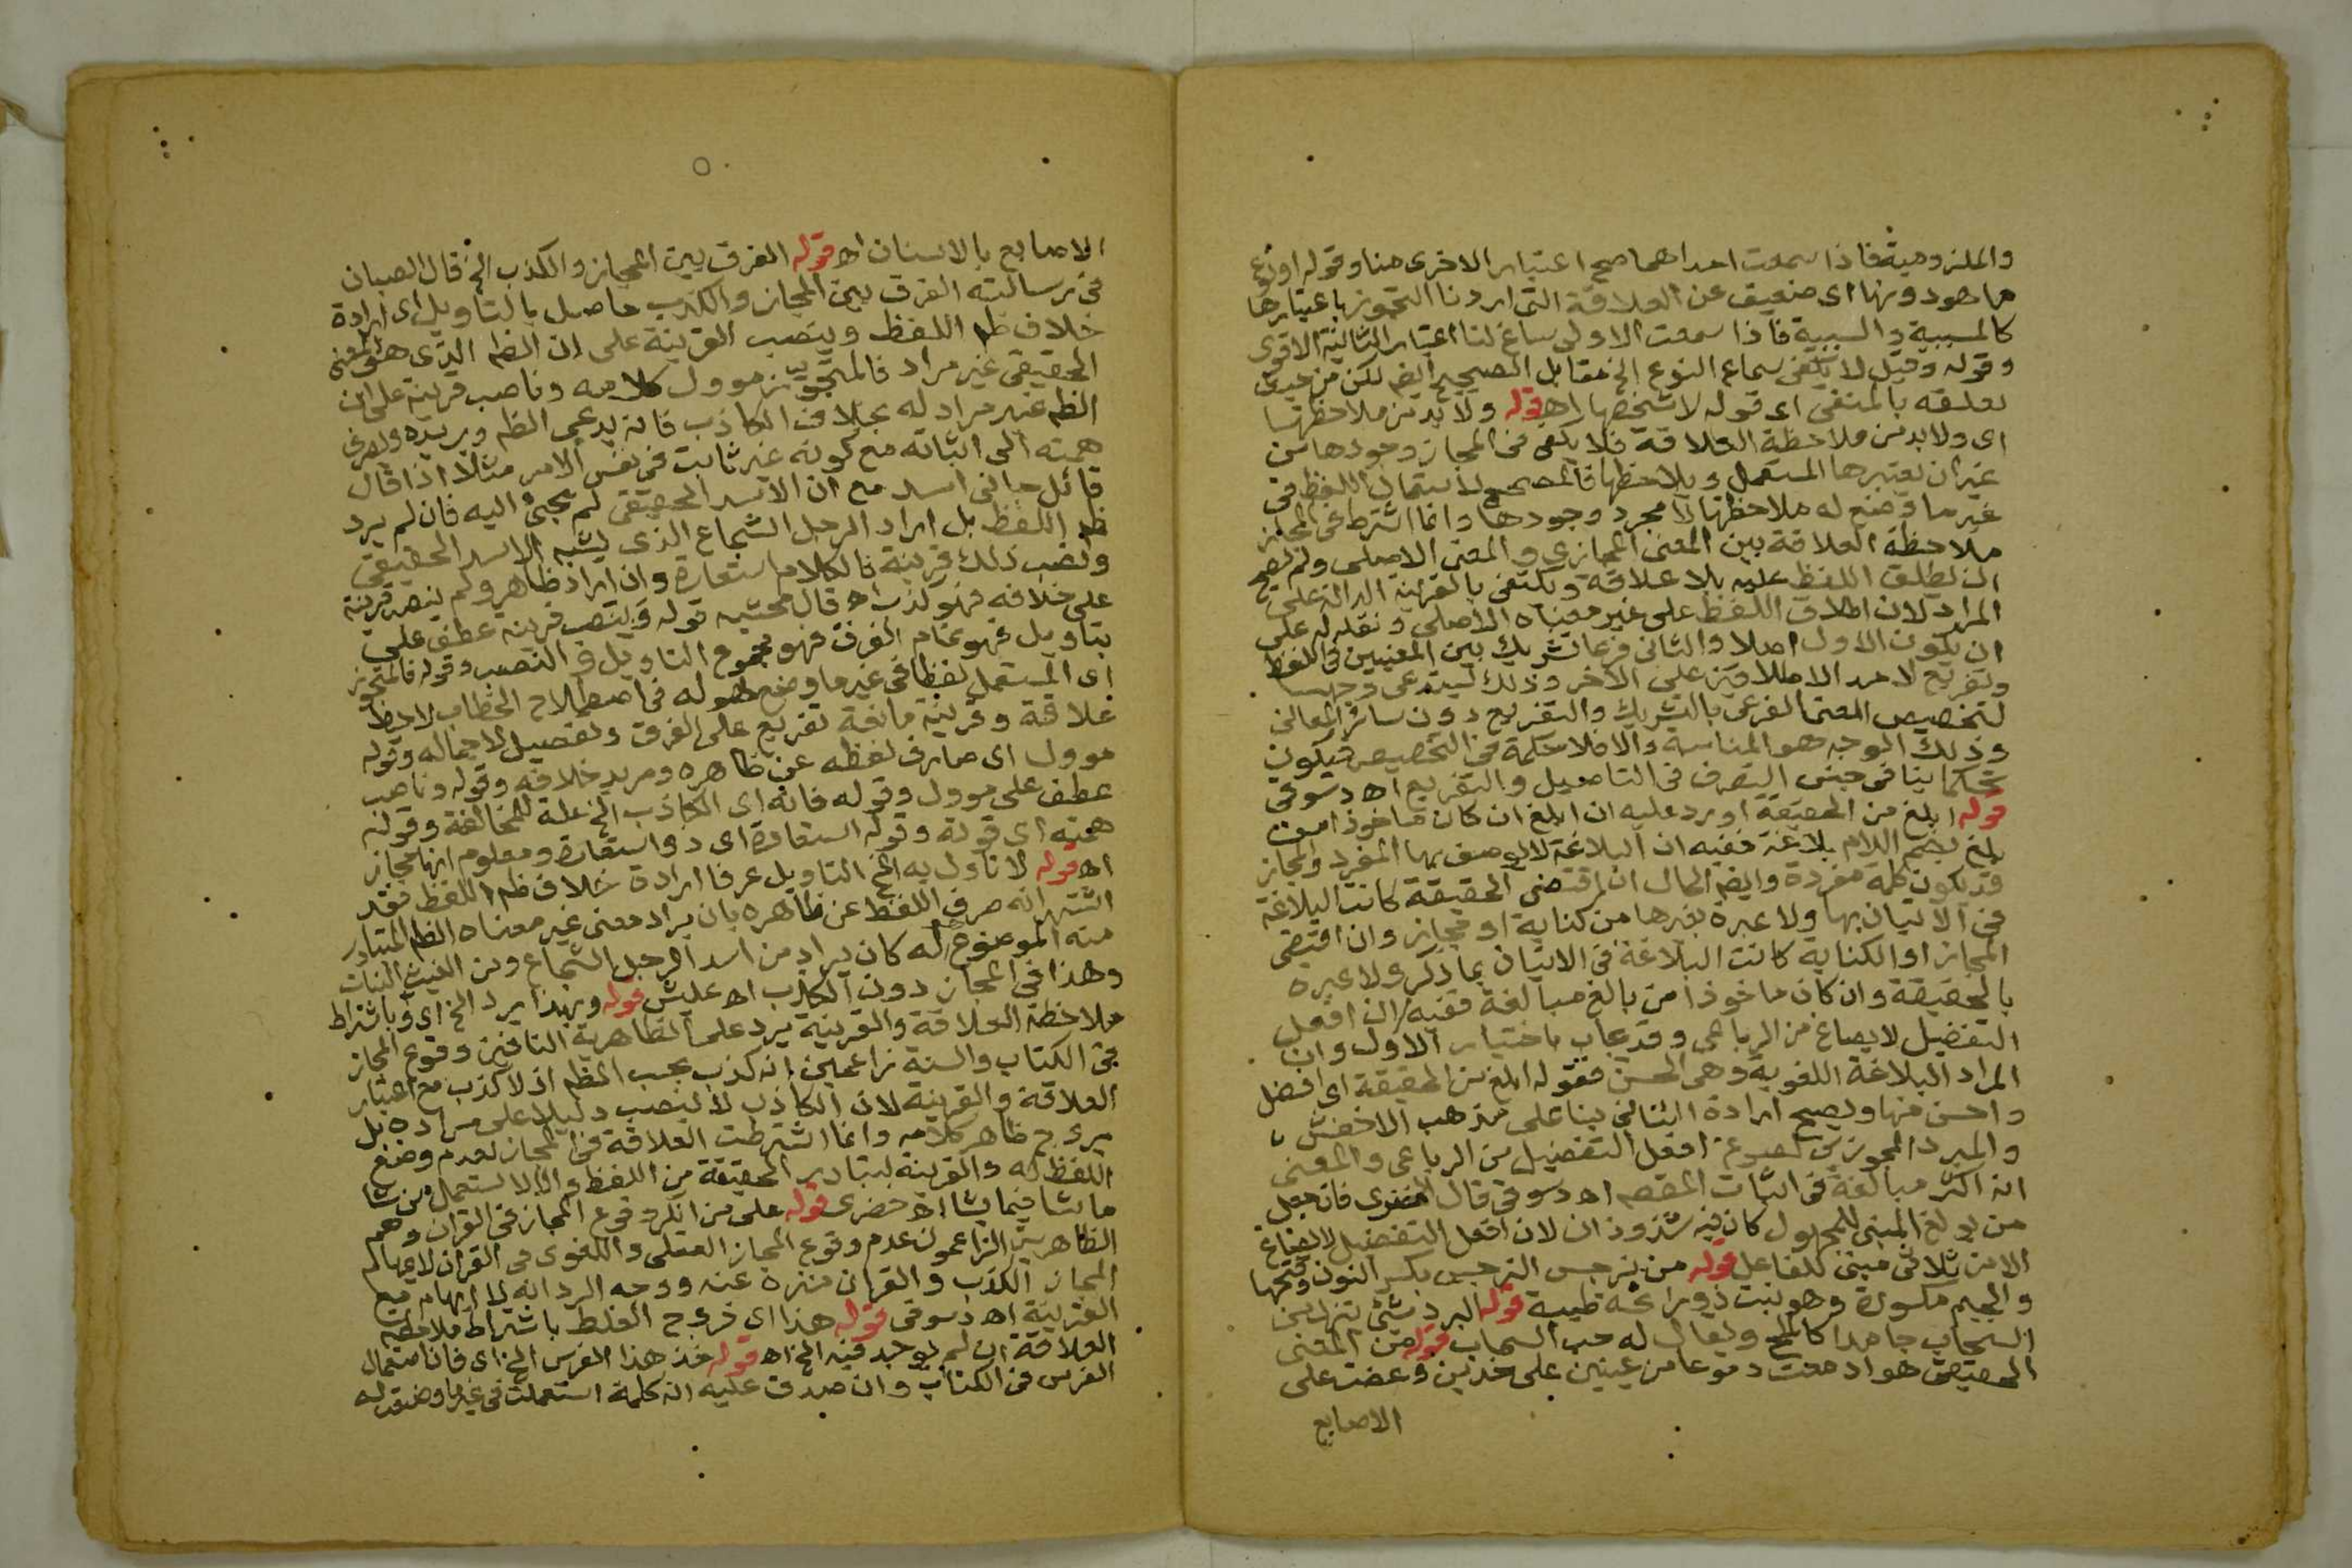 والملزومية فاذا سمعت احداهما صح اعتبار الاخرى منا وقوله او نوع
ما هو دونها اى ضعيف عن العلاقة التى اردنا التجوز باعتبارها
كالمسببية والسببية فاذا سمعت الاولى ساغ لنا اعتبار الثانية الاقوى
وقوله وقيل لا يكفى سماع النوع الخ مقابل الصحيح ايضا لكن من حيث
تعلقه بالمنفى اى قوله لا شخصها اه قوله ولا بد من ملاحظتها
اى ولا بد من ملاحظة العلاقة فلا يكفى فى المجاز وجودها من
غير ان يعتبرها المستعمل ويلاحظها فالمصحح لاستعمال اللفظ فى
غير ما وضع له ملاحظتها لا مجرد وجودها وانما اشترط فى المجاز
ملاحظة العلاقة بين المعنى المجازى والمعنى الاصلى ولم يصح
ان يطلق اللفظ عليه بلا علاقة ويكتفى بالقرينة الدالة على
المراد لان اطلاق اللفظ على غير معناه الاصلى ونقله له على
ان يكون الاول اصلا والثانى فرعا تشريك بين المعنيين فى اللفظ
وتفريع لاحد الاطلاقين على الاخر وذلك يستدعى وجها
لتخصيص المعنى الفرعى بالتشريك والتفريع دون سائر المعانى
وذلك الوجه هو المناسبة والا فلا حكمة فى التخصيص فيكون
تحكما ينافى حسن التصرف فى التاصيل والتفريع اه دسوقى
قوله ابلغ من الحقيقة اورد عليه ان ابلغ ان كان ماخوذا من
بلغ بضم اللام بلاغة ففيه ان البلاغة لا يوصف بها المفرد والمجاز
قد يكون كلمة مفردة وايضا الحال ان اقتضى الحقيقة كانت البلاغة
فى الاتيان بها ولا عبرة بغيرها من كناية او مجاز وان اقتضى
المجاز او الكناية كانت البلاغة فى الاتيان بما ذكر ولا عبرة
بالحقيقة وان كان ماخوذا من بالغ مبالغة ففيه ان افعل
التفضيل لا يصاغ من الرباعى وقد يجاب باختيار الاول وان
المراد البلاغة اللغوية وهى الحسن فقوله ابلغ من الحقيقة اى افضل
واحسن منها ويصح ارادة الثانى بنا على مذهب الاخفش
والمبرد المجوزين لصوغ افعل التفضيل من الرباعى والمعنى
انه اكثر مبالغة فى اثبات المقصم اه دسوقى قال الخضرى فان جعل
من بولغ المبنى للمجهول كان فيه شذوذان لان افعل التفضيل لا يصاغ
الا من ثلاثى مبنى للفاعل قوله من نرجس النرجس بكسر النون وفتحها
والجيم مكسورة وهو نبت ذو رائحة طيبة قوله البرد شئ ينزل من
السحاب جامدا كالملح ويقال له حب السحاب قوله من المعنى
الحقيقى هو ادمعت دموعا من عينين على خدين وعضت على
الاصابع
الاصابع بالاسنان اه قوله الفرق بين المجاز والكذب الخ قال الصبان
فى رسالته الفرق بين المجاز والكذب حاصل بالتاويل اى ارادة
خلاف ظم اللفظ وبنصب القرينة على ان الظم الذى هو المعنى
الحقيقى غير مراد فالمتجوز موول كلامه وناصب قرينة على ان
الظم غير مراد له بخلاف الكاذب فانه يدعى الظم ويريده ويصرف
همته الى اثباته مع كونه غير ثابت فى نفس الامر مثلا اذا قال
قائل جانى اسد مع ان الاسد الحقيقى لم يجئ اليه فان لم يرد
ظم اللفظ بل اراد الرجل الشجاع الذى يشبه الاسد الحقيقى
ونصب ذلك قرينة فالكلام استعارة وان اراد ظاهره ولم ينصب قرينة
على خلافه فهو كذب اه قال محشيه قوله وبنصب قرينة عطف على
بتاويل فهو تمام الفرق فهو مجموع التاويل والنصب وقوله فالمتجوز
اى المستعمل لفظا فى غير ما وضع هو له فى اصطلاح الخطاب لاحظ
علاقة وقرينة مانعة تفريع على الفرق وتفصيل لاجماله وقوله
موول اى صارف لفظه عن ظاهره ومريد خلافه وقوله وناصب
عطف على موول وقوله فانه اى الكاذب الخ علة للمخالفة وقوله
همته اى قوته وقوله استعارة اى ذو استعارة ومعلوم انها مجاز
اه قوله لا تاول به الخ التاويل عرفا ارادة خلاف ظم اللفظ فقد
اشتهر انه صرف اللفظ عن ظاهره بان يراد معنى غير معناه الظم المتبادر
منه الموضوع له كان يراد من اسد الرجل الشجاع ومن الغيث النبات
وهذا فى المجاز دون الكذب اه عليش قوله وبهذا يرد الخ اى وباشتراط
ملاحظة العلاقة والقرينة يرد على الظاهرية النافين وقوع المجاز
فى الكتاب والسنة زاعمين انه كذب بحسب الظم اذ لا كذب مع اعتبار
العلاقة والقرينة لان الكاذب لا ينصب دليلا على مراده بل
يروج ظاهر كلامه وانما اشترطت العلاقة فى المجاز لعدم وضع
اللفظ له والقرينة لتبادر الحقيقة من اللفظ والا لاستعمل من شا
ما شا فيما شا اه خضرى قوله على من انكر وقوع المجاز فى القران وهم
الظاهرية الزاعمون عدم وقوع المجاز العقلى واللغوى فى القران لايهام
المجاز الكذب والقران منزه عنه ووجه الرد انه لا ايهام مع
القرينة اه دسوقى قوله هذا اى خروج الغلط باشتراط ملاحظة
العلاقة ان لم يوجد فيه الخ اه قوله خذ هذا الفرس الخ اى فان استعمال
الفرس فى الكتاب وان صدق عليه انه كلمة استعملت فى غير ما وضعت له